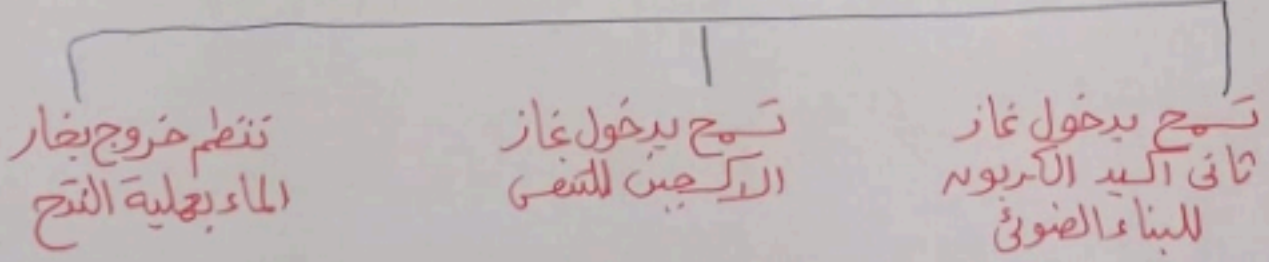 تسمح بدخول غاز
ثانى اكسيد الكربون
للبناء الضوئى
تسمح بدخول غاز
الاكسجين للتنفس
تنظم خروج بخار
الماء بعملية النتح